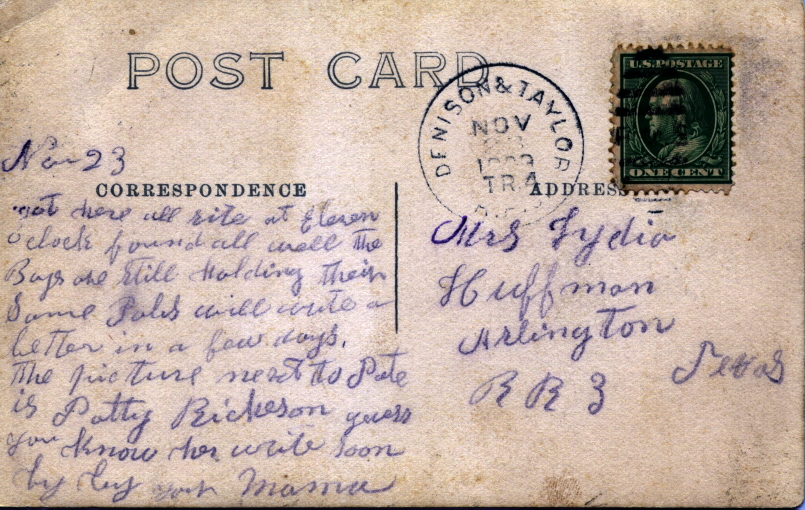 POST CARD
DENISON & TAYLOR
NOV
23
1909
TR.4
R.P.O.
U.S. POSTAGE
ONE CENT
Nov 23
CORRESPONDENCE
ADDRESS
got here all rite at Eleven
o clock found all well the
Boys are still holding their
Same Jobs will write a
letter in a few days.
The picture next to Pate
is Patty Rickeson guess
you know her write soon
by by your Mama
Mrs Lydia
Huffman
Arlington
Texas
RR 3